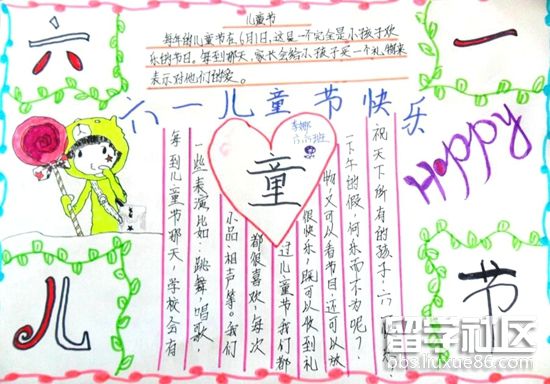 儿童节
每年的儿童节在6月1日,这是一个完全是小孩子欢
乐的节日。每到那天,家长会给小孩子买一个礼物来
表示对他们的爱。
六一儿童节快乐
六
一
儿
节
童
李娜
六(6)班
Happy
祝天下所有的孩子:六一快乐!
下午的假,何乐而不为呢?
物,又可以看节目,还可以放
很快乐,既可以收到礼
过儿童节,我们都
都很喜欢,每次
小品,相声等。我们
一些表演比如:跳舞,唱歌,
每到儿童节那天,学校会有
留学社区
bbs.liuxue86.com